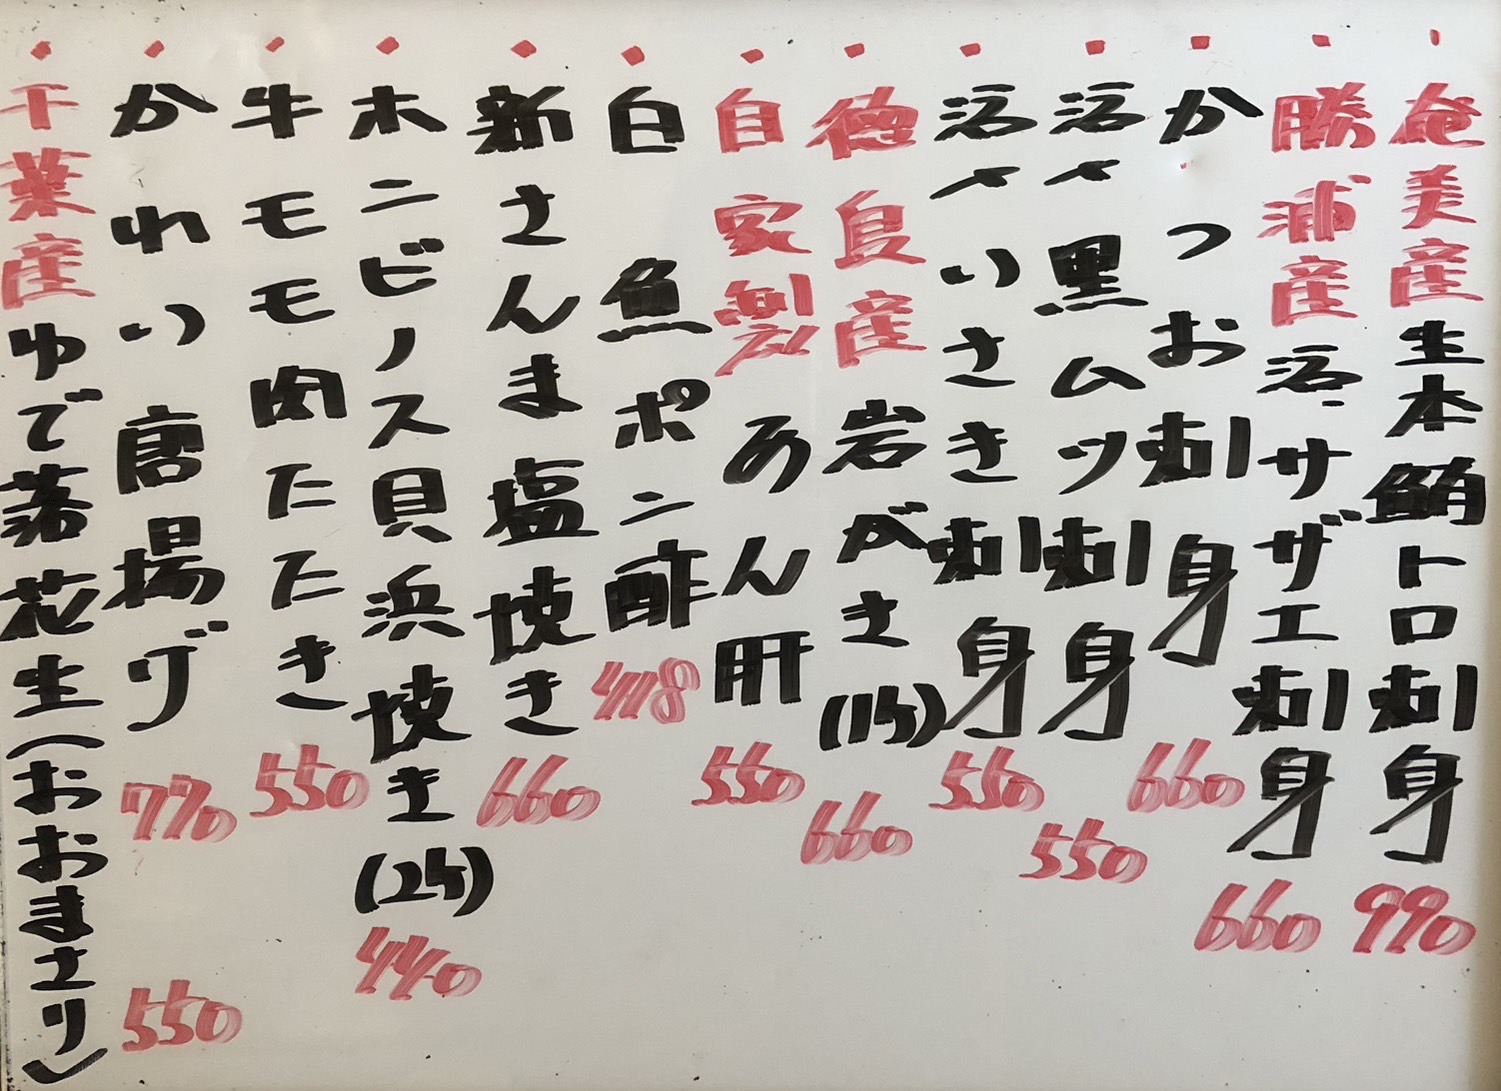 奄美産生本鮪トロ刺身 990
勝浦産活サザエ刺身 660
かつお刺身 660
活〆黒ムツ刺身 550
活〆いさき刺身 550
徳島産岩がき(1ケ) 660
自家製あん肝 550
白魚ポン酢 418
新さんま塩焼き 660
ホンビノス貝浜焼き(2ケ) 440
牛モモ肉たたき 550
かれい唐揚げ 770
千葉産ゆで落花生(おおまさり) 550